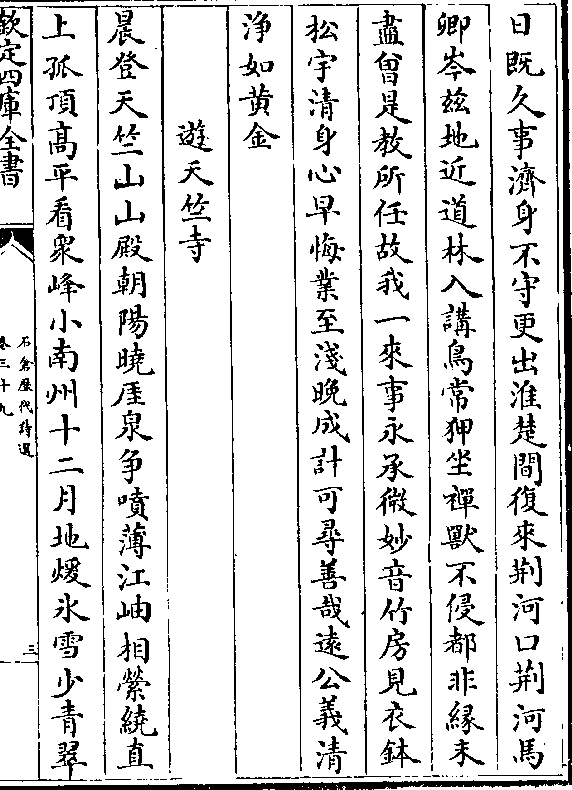 日既久事濟身不守更出淮楚間復來荆河口荆河馬
卿岑兹地近道林入講鳥常狎坐禪獸不侵都非緣未
盡曾是教所任故我一來事永承微妙音竹房見衣鉢
松宇清身心早悔業至淺晚成計可尋善哉遠公義清
淨如黄金
遊天竺寺
晨登天竺山山殿朝陽曉厓泉争噴薄江岫相縈繞直
上孤頂高平看衆峰小南州十二月地煖氷雪少青翠
欽定四庫全書
石倉歷代詩選
卷三十九
三